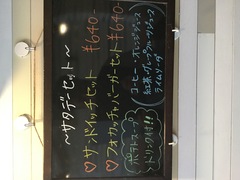 ～サタデーセット～
♡サンドイッチセット ¥640-
♡フォカッチャバーガーセット ¥640-
コーヒー・オレンジジュース
紅茶・グレープフルーツジュース
ライムソーダ
ポテトスープ
ドリンク付!!